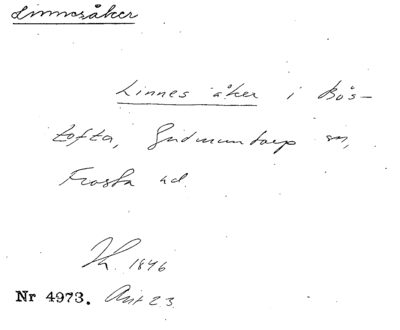 Linnesåker
Linnes åker i Bös-
tofta, Gudmuntorp sn,
Frosta hd.
1846
Nr 4973. Ant 23